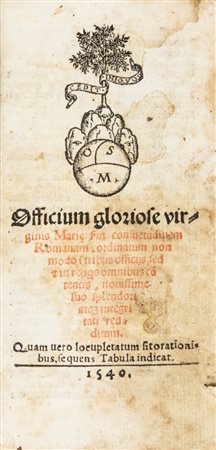 CEDIT
O S
M
Officium gloriose vir-
ginis Marie sm consuetudinem
Romanam, ordinatum non
modo tribus officijs, sed
& in reliqs omnibus cō
tentis, nouissime
suo splendori
atq; integri
tati red-
ditum.
Quam uero locupletatum sit orationi-
bus, sequens Tabula indicat.
1540.